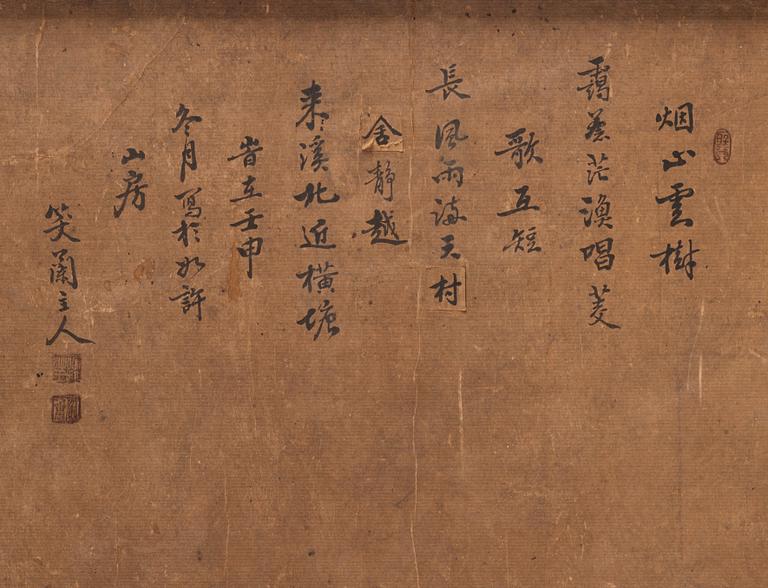 烟山雲樹
靄蒼茫漁唱菱
歌互短
長風雨滿天村
舍靜越
来溪北近橫塘
旹在壬申
冬月寫於如許
山房
笑蘭主人